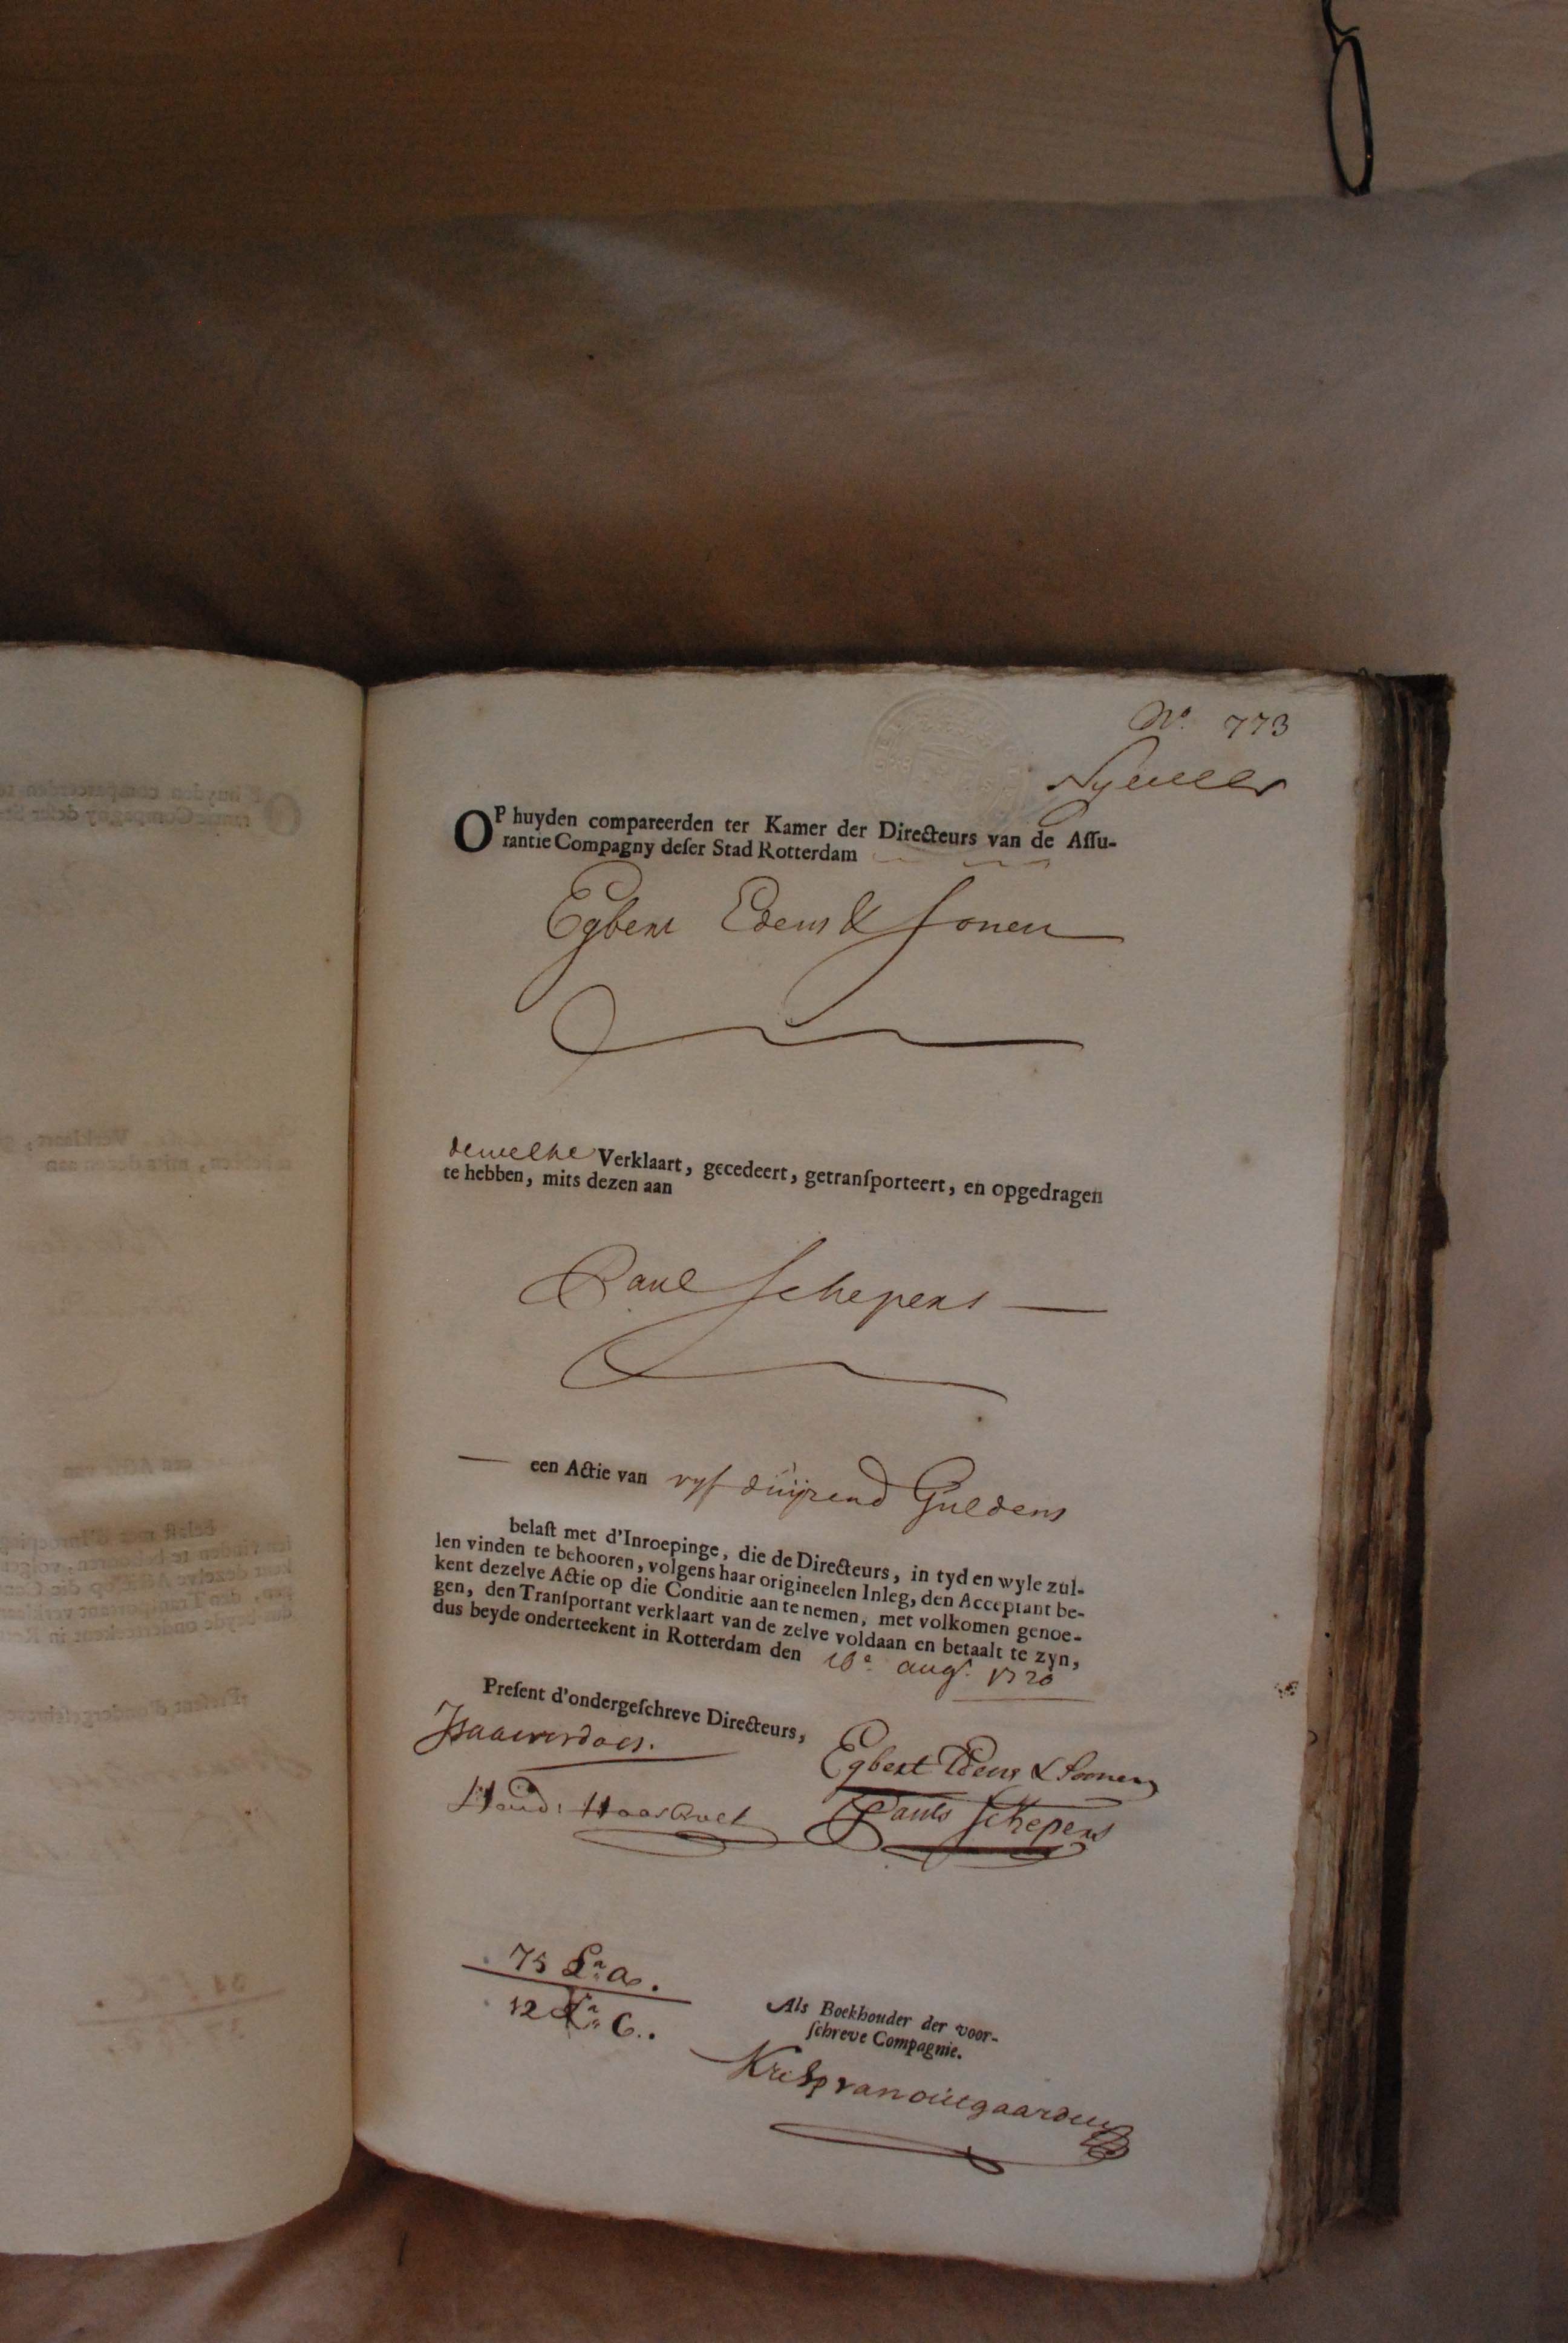 No. 773
OP huyden compareerden ter Kamer der Directeurs van de Aſſu-
rantie Compagny deſer Stad Rotterdam
Egbert Edens & Sonen
dewelke Verklaart, gecedeert, getranſporteert, en opgedragen
te hebben, mits dezen aan
Paul Schepers
een Actie van vyf duÿzend Guldens
belaſt met d'Inroepinge, die de Directeurs, in tyd en wyle zul-
len vinden te behooren, volgens haar origineelen Inleg, den Acceptant be-
kent dezelve Actie op die Conditie aan te nemen, met volkomen genoe-
gen, den Tranſportant verklaart van de zelve voldaan en betaalt te zyn,
dus beyde onderteekent in Rotterdam den 10e augt. 1720
Preſent d'ondergeſchreve Directeurs,
Egbert Edens & Soonen
Paulo Schepers
75 La. a.
12 La. C.
Als Boekhouder der voor-
ſchreve Compagnie.